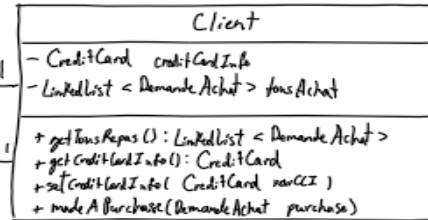 Client
- CreditCard creditCardInfo
- LinkedList < Demande Achat > tousAchat
1
1
+ getTousRepas () : LinkedList < Demande Achat >
+ getCreditCardInfo() : CreditCard
+ setCreditCardInfo( CreditCard nouvCCI )
+ madeAPurchase (Demande Achat purchase)